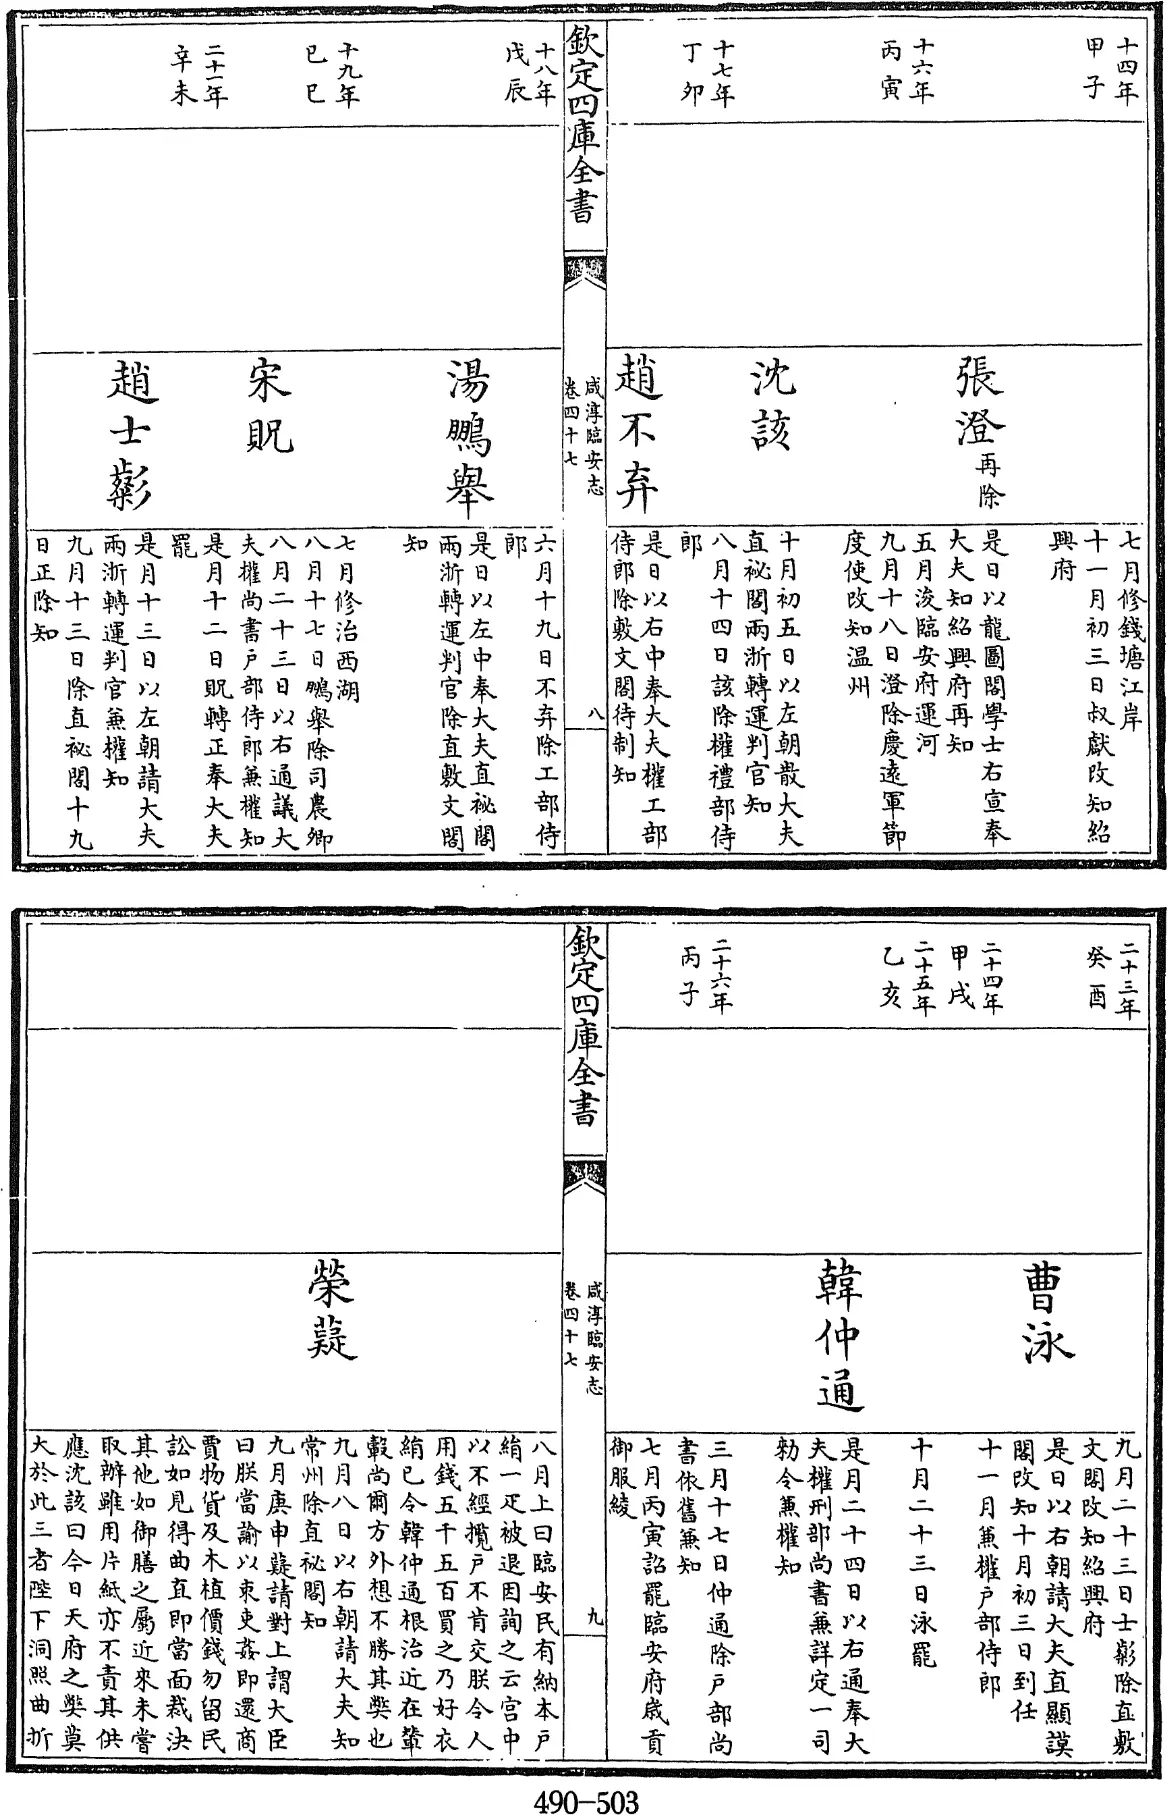 十四年
甲子
十六年
丙寅
十七年
丁卯
張澄再除
沈該
趙不弃
七月修錢塘江岸
十一月初三日叔獻改知紹
興府
是日以龍圖閣學士右宣奉
大夫知紹興府再知
五月浚臨安府運河
九月十八日澄除慶遠軍節
度使改知温州
十月初五日以左朝散大夫
直祕閣兩浙轉運判官知
八月十四日該除權禮部侍
郎
是日以右中奉大夫權工部
侍郎除敷文閣待制知
欽定四庫全書
咸淳臨安志
卷四十七
八
十八年
戊辰
十九年
己巳
二十一年
辛未
湯鵬舉
宋貺
趙士㣉
六月十九日不弃除工部侍
郎
是日以左中奉大夫直祕閣
兩浙轉運判官除直敷文閣
知
七月修治西湖
八月十七日鵬舉除司農卿
八月二十三日以右通議大
夫權尚書户部侍郎兼權知
是月十二日貺轉正奉大夫
罷
是月十三日以左朝請大夫
兩浙轉運判官兼權知
九月十三日除直祕閣十九
日正除知
二十三年
癸酉
二十四年
甲戌
二十五年
乙亥
二十六年
丙子
曹泳
韓仲通
九月二十三日士㣉除直敷
文閣改知紹興府
是日以右朝請大夫直顯謨
閣改知十月初三日到任
十一月兼權户部侍郎
十月二十三日泳罷
是月二十四日以右通奉大
夫權刑部尚書兼詳定一司
勑令兼權知
三月十七日仲通除户部尚
書依舊兼知
七月丙寅詔罷臨安府歲貢
御服綾
欽定四庫全書
咸淳臨安志
卷四十七
九
榮薿
八月上曰臨安民有納本戸
絹一疋被退因詢之云宫中
以不經攬戸不肯交朕令人
用錢五千五百買之乃好衣
絹已令韓仲通根治近在輦
轂尚爾方外想不勝其弊也
九月八日以右朝請大夫知
常州除直祕閣知
九月庚申薿請對上謂大臣
曰朕當諭以束吏姦即還商
賈物貨及木植價錢勿留民
訟如見得曲直即當面裁決
其他如御膳之屬近來未嘗
取辦雖用片紙亦不責其供
應沈該曰今日天府之弊莫
大於此三者陛下洞照曲折
490-503